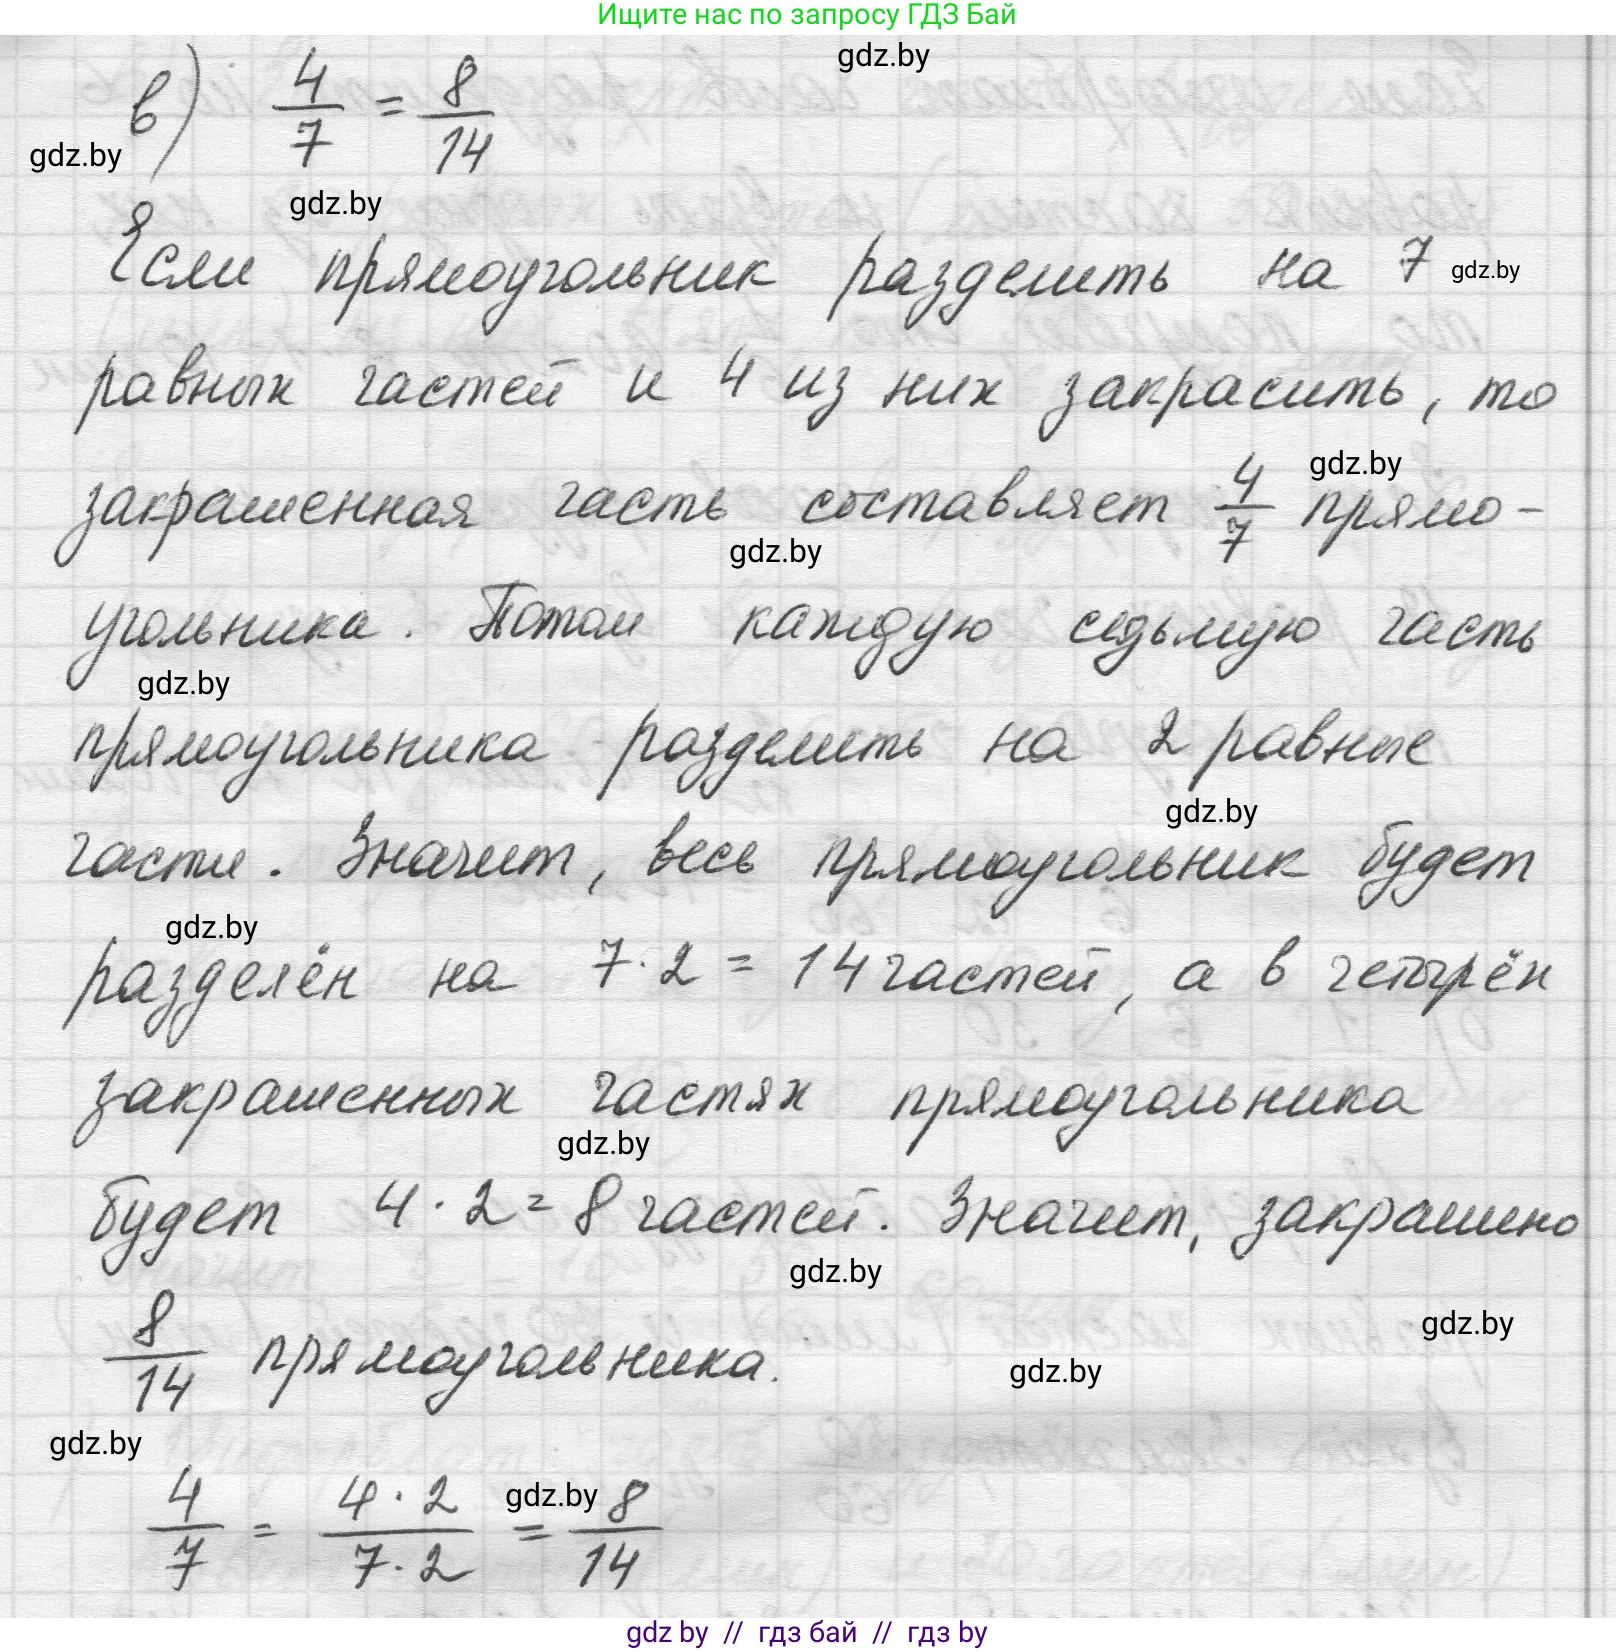 Ищите нас по запросу ГДЗ Бай
gdz.by
в) 4/7 = 8/14
gdz.by
gdz.by
Если прямоугольник разделить на 7 gdz.by
равных частей и 4 из них закрасить, то
закрашенная часть составляет 4/7 прямо-
gdz.by
gdz.by
угольника. Потом каждую седьмую часть
gdz.by
прямоугольника разделить на 2 равные
gdz.by
части. Значит, весь прямоугольник будет
gdz.by
разделён на 7·2 = 14 частей, а в четырёх
закрашенных частях прямоугольника
gdz.by
будет 4·2=8 частей. Значит, закрашено
gdz.by
gdz.by
8/14 прямоугольника.
gdz.by
gdz.by
4/7 = 4·2/7·2 = 8/14
gdz.by
gdz by // гдз бай // гдз by